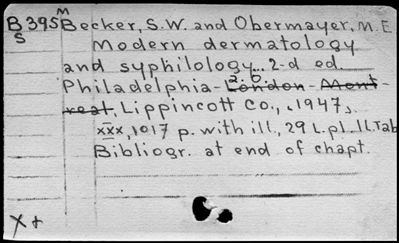 M
B395 Becker, S.W. and Obermayer, M.E.
S Modern dermatology
and syphilology... 2-d ed.
a. o.
Philadelphia - London - Mont-
real, Lippincott Co., 1947,
xxx, 1017 p. with ill., 29 L. pl. IL. Tab
Bibliogr. at end of chapt.
X+